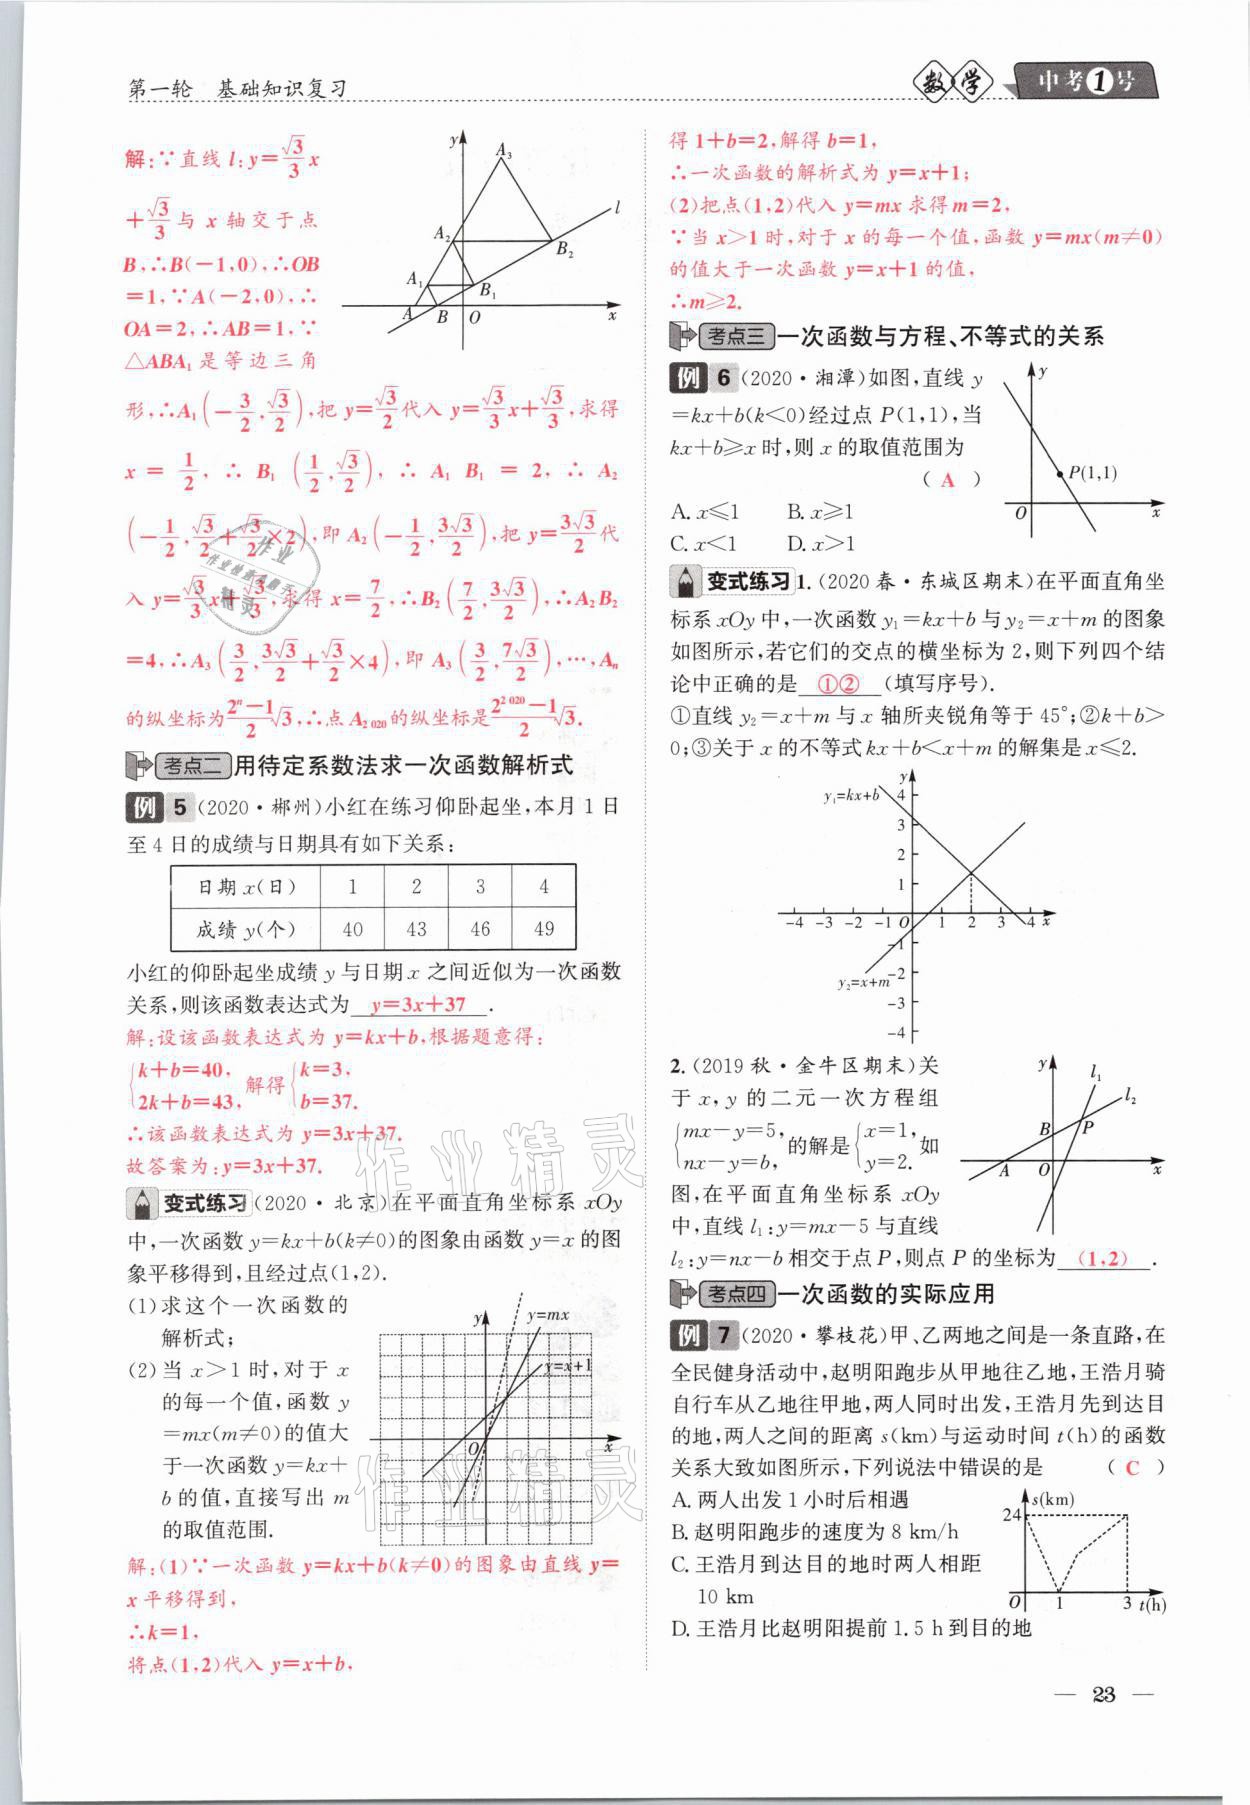 第一轮 基础知识复习
数学 中考1号
解:∵直线 l:y=√3/3 x
+√3/3 与 x 轴交于点
B,∴B(-1,0),∴OB
=1,∵A(-2,0),∴
OA=2,∴AB=1,∵
△ABA₁ 是等边三角
形,∴A₁(-3/2,√3/2),把 y=√3/2 代入 y=√3/3 x+√3/3,求得
x=1/2,∴B₁(1/2,√3/2),∴A₁B₁=2,∴A₂
(-1/2,√3/2+√3/2×2),即A₂(-1/2,3√3/2),把 y=3√3/2 代
入 y=√3/3 x+√3/3,求得 x=7/2,∴B₂(7/2,3√3/2),∴A₂B₂
=4,∴A₃(3/2,3√3/2+√3/2×4),即 A₃(3/2,7√3/2),…,Aₙ
的纵坐标为 (2ⁿ-1)/2 √3,∴点A₂₀₂₀的纵坐标是 (2²⁰²⁰-1)/2 √3.
y A₃ l A₂ B₂ A₁ B₁ A B O x
考点二 用待定系数法求一次函数解析式
例 5 (2020·郴州)小红在练习仰卧起坐,本月 1 日
至 4 日的成绩与日期具有如下关系:
日期 x(日) 1 2 3 4
成绩 y(个) 40 43 46 49
小红的仰卧起坐成绩 y 与日期 x 之间近似为一次函数
关系,则该函数表达式为 y=3x+37 .
解:设该函数表达式为 y=kx+b,根据题意得:
{k+b=40, 解得 {k=3,
2k+b=43, b=37.
∴该函数表达式为 y=3x+37.
故答案为:y=3x+37.
变式练习 (2020·北京)在平面直角坐标系 xOy
中,一次函数 y=kx+b(k≠0)的图象由函数 y=x 的图
象平移得到,且经过点(1,2).
(1)求这个一次函数的
解析式;
(2)当 x>1 时,对于 x
的每一个值,函数 y
=mx(m≠0)的值大
于一次函数 y=kx+
b 的值,直接写出 m
的取值范围.
y y=mx
y=x+1
O x
解:(1)∵一次函数 y=kx+b(k≠0)的图象由直线 y=
x 平移得到,
∴k=1,
将点(1,2)代入 y=x+b,
得 1+b=2,解得 b=1,
∴一次函数的解析式为 y=x+1;
(2)把点(1,2)代入 y=mx 求得 m=2,
∵当 x>1 时,对于 x 的每一个值,函数 y=mx(m≠0)
的值大于一次函数 y=x+1 的值,
∴m≥2.
考点三 一次函数与方程、不等式的关系
例 6 (2020·湘潭)如图,直线 y
=kx+b(k<0)经过点 P(1,1),当
kx+b≥x 时,则 x 的取值范围为
( A )
A. x≤1 B. x≥1
C. x<1 D. x>1
y P(1,1) O x
变式练习 1. (2020 春·东城区期末)在平面直角坐
标系 xOy 中,一次函数 y₁=kx+b 与 y₂=x+m 的图象
如图所示,若它们的交点的横坐标为 2,则下列四个结
论中正确的是 ①② (填写序号).
①直线 y₂=x+m 与 x 轴所夹锐角等于 45°;②k+b>
0;③关于 x 的不等式 kx+b<x+m 的解集是 x≤2.
y
y₁=kx+b 4
3
2
1
-4 -3 -2 -1 O 1 2 3 4 x
-1
-2
y₂=x+m
-3
-4
2. (2019 秋·金牛区期末)关
于 x,y 的二元一次方程组
{mx-y=5, 的解是 {x=1, 如
nx-y=b, y=2.
图,在平面直角坐标系 xOy
中,直线 l₁:y=mx-5 与直线
l₂:y=nx-b 相交于点 P,则点 P 的坐标为 (1,2) .
y l₁ l₂ B P A O x
考点四 一次函数的实际应用
例 7 (2020·攀枝花)甲、乙两地之间是一条直路,在
全民健身活动中,赵明阳跑步从甲地往乙地,王浩月骑
自行车从乙地往甲地,两人同时出发,王浩月先到达目
的地,两人之间的距离 s(km)与运动时间 t(h)的函数
关系大致如图所示,下列说法中错误的是 ( C )
A. 两人出发 1 小时后相遇
B. 赵明阳跑步的速度为 8 km/h
C. 王浩月到达目的地时两人相距
10 km
D. 王浩月比赵明阳提前 1.5 h 到目的地
s(km)
24
O 1 3 t(h)
作业精灵
作业精灵
— 23 —